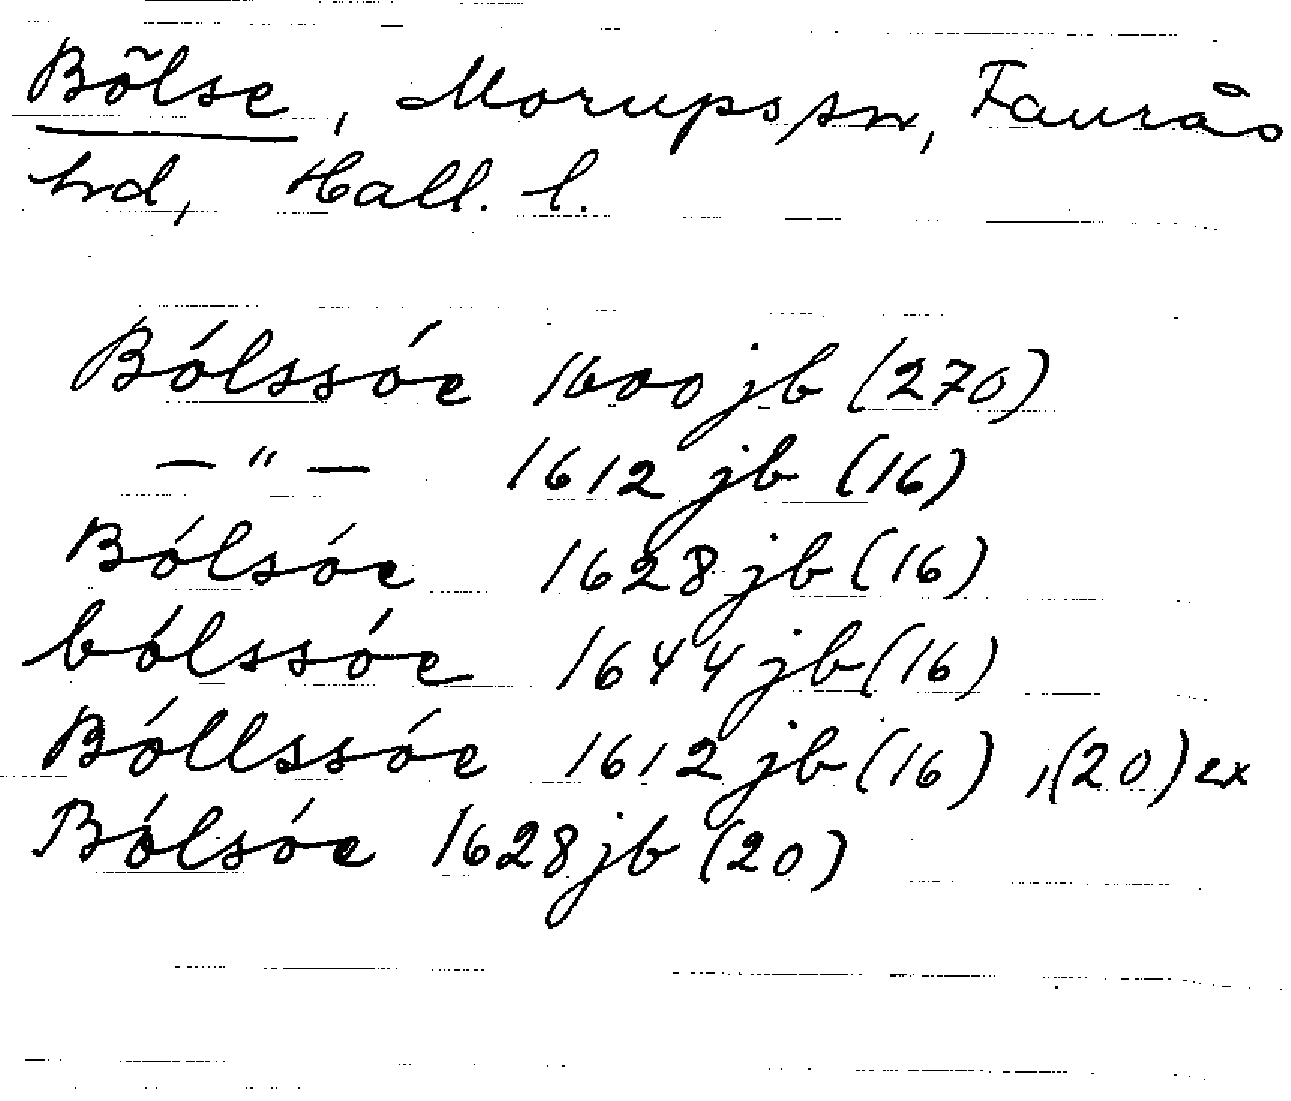 Bõlse, Morups sn, Faurås
hrd, Hall. l.
Bólssóe 1600 jb (270)
— " — 1612 jb (16)
Bólsóe 1628 jb (16)
bólssóe 1644 jb (16)
Bóllssóe 1612 jb (16), (20) ex
Bólsóe 1628 jb (20)